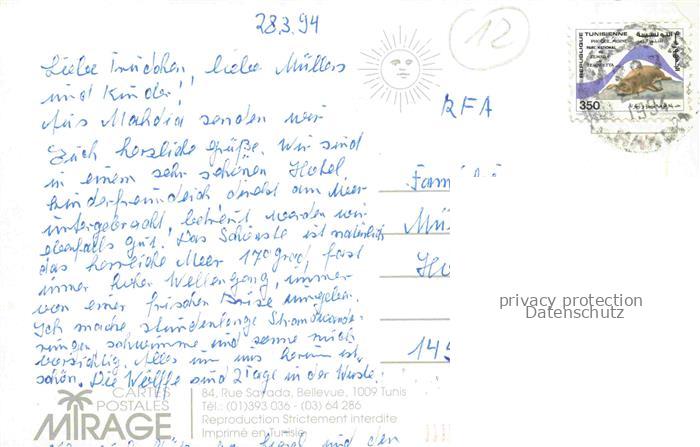 28.3.94
12
Liebe Trudchen, liebe Müllers
und Kinder!
Aus Mahdia senden wir
Euch herzliche Grüße. Wir sind
in einem sehr schönen Hotel,
kinderfreundlich, direkt am Meer
untergebracht, betreut werden wir
ebenfalls gut. Das Schönste ist natürlich
das herrliche Meer 17 Grad, fast
immer hoher Wellengang, immer
von einer frischen Brise umgeben.
Ich mache stundenlange Strandwande-
rungen, schwimme und sonne mich
vorsichtig. Alles um uns herum ist
schön. Die Wölffe sind 2 Tage in der Wüste.
und den
RFA
Fam
Mü
14
REPUBLIQUE TUNISIENNE
PARC NATIONAL
350
privacy protection
Datenschutz
CARTES
POSTALES
MIRAGE
84, Rue Sayada, Bellevue, 1009 Tunis
Tél.: (01)393 036 - (03) 64 286
Reproduction Strictement interdite
Imprimé en Tunisie